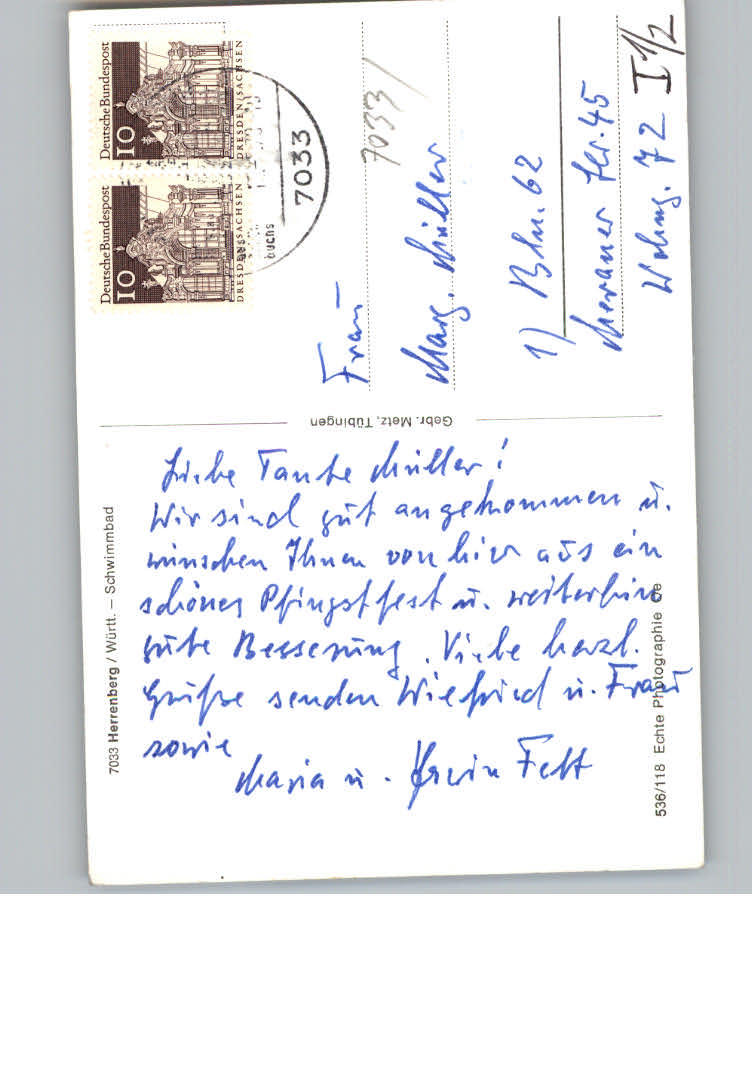 Liebe Tante Müller!
Wir sind gut angekommen u.
wünschen Ihnen von hier aus ein
schönes Pfingstfest u. weiterhin
gute Besserung. Viele herzl.
Grüße senden Wiefried u. Frau
sowie
Maria u. Erwin Felt
7033 Herrenberg / Württ. – Schwimmbad
Gebr. Metz, Tübingen
536/118 Echte Photographie
Deutsche Bundespost
10
DRESDEN/SACHSEN
Deutsche Bundespost
10
DRESDEN/SACHSEN
7033
buchs
7033/
Frau
Marg. Müller
1) Bln. 62
Meraner Str. 45
Wohng. 72 I 1/2